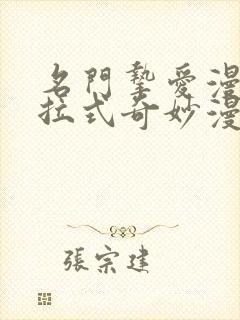 名門摯愛漫
拉式奇妙漫
張宗建